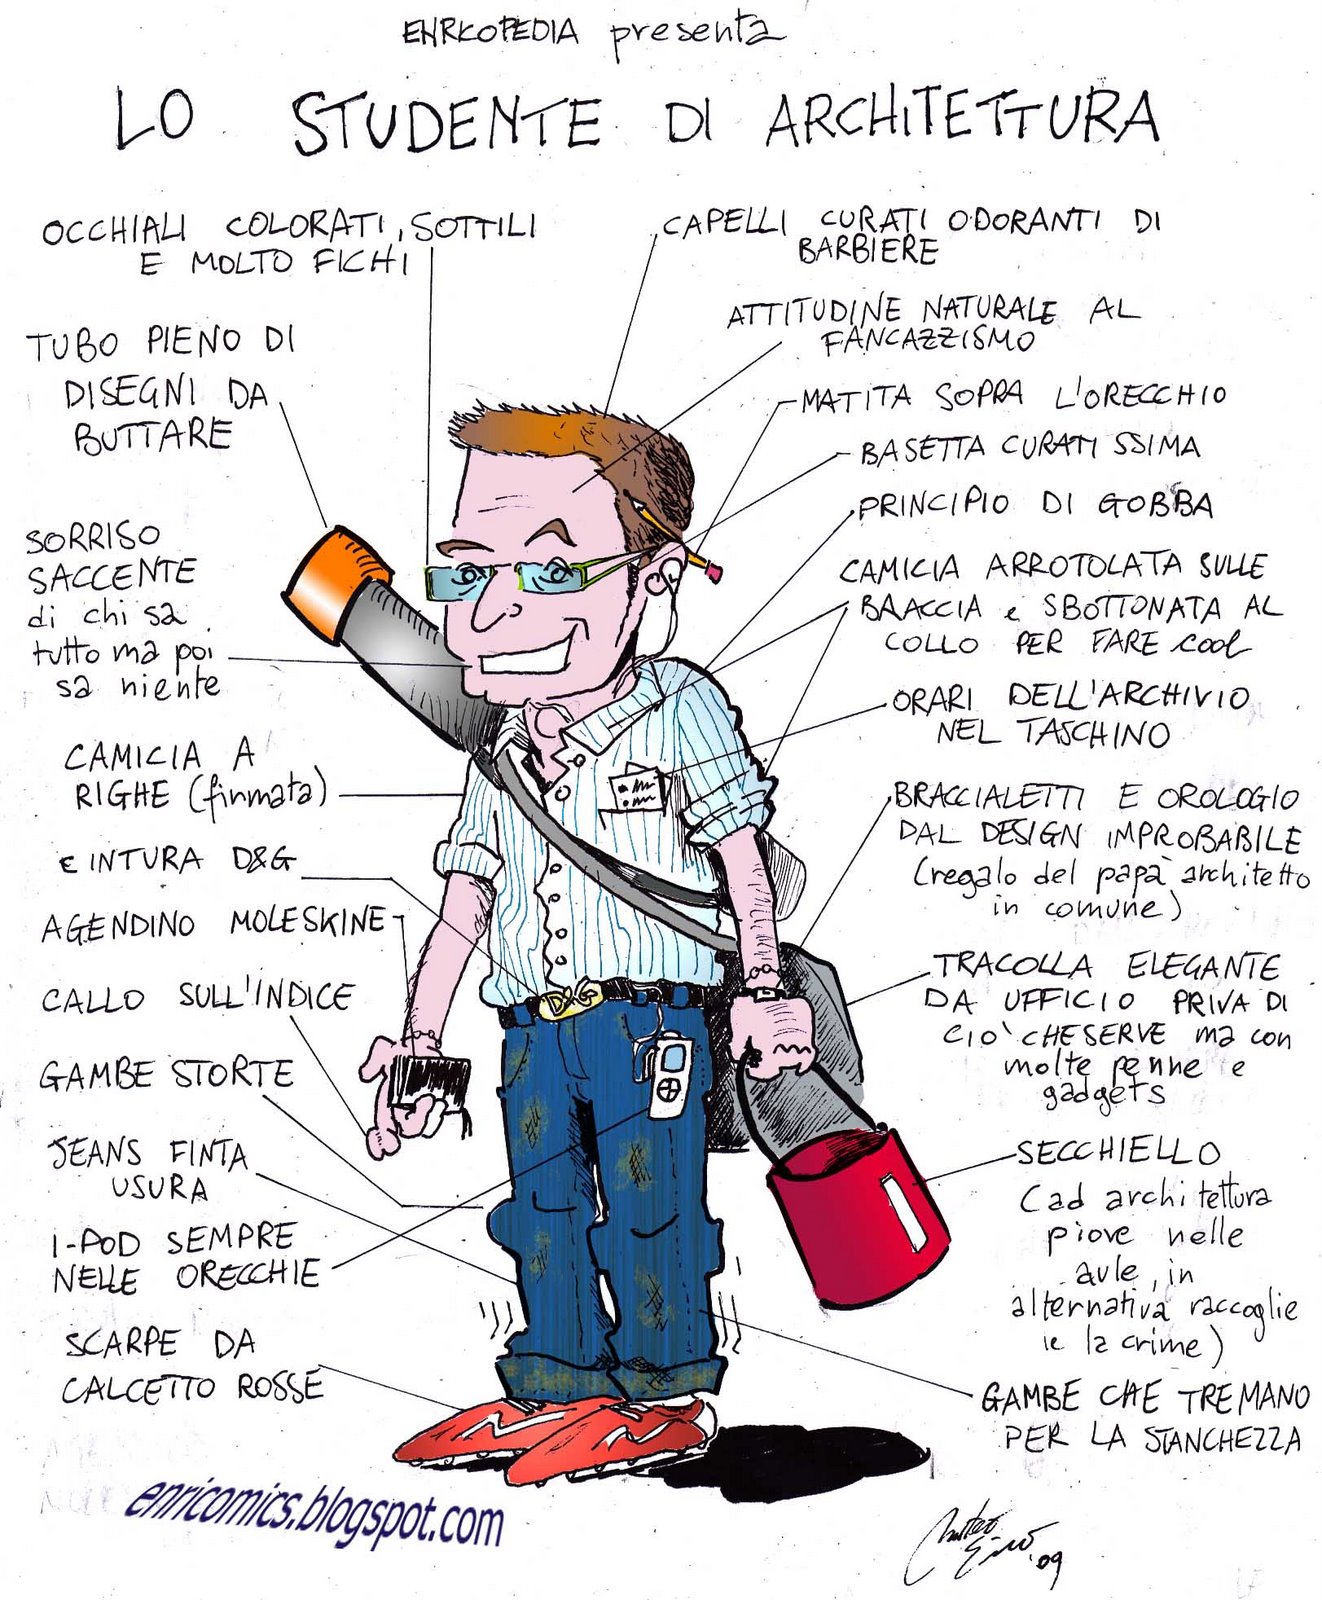 ENRICOPEDIA presenta
LO STUDENTE DI ARCHITETTURA
OCCHIALI COLORATI, SOTTILI
E MOLTO FICHI
TUBO PIENO DI
DISEGNI DA
BUTTARE
SORRISO
SACCENTE
di chi sa
tutto ma poi
sa niente
CAMICIA A
RIGHE (firmata)
CINTURA D&G
AGENDINO MOLESKINE
CALLO SULL'INDICE
GAMBE STORTE
JEANS FINTA
USURA
I-POD SEMPRE
NELLE ORECCHIE
SCARPE DA
CALCETTO ROSSE
CAPELLI CURATI ODORANTI DI
BARBIERE
ATTITUDINE NATURALE AL
FANCAZZISMO
MATITA SOPRA L'ORECCHIO
BASETTA CURATISSIMA
PRINCIPIO DI GOBBA
CAMICIA ARROTOLATA SULLE
BRACCIA e SBOTTONATA AL
COLLO PER FARE cool
ORARI DELL'ARCHIVIO
NEL TASCHINO
BRACCIALETTI E OROLOGIO
DAL DESIGN IMPROBABILE
(regalo del papà architetto
in comune)
TRACOLLA ELEGANTE
DA UFFICIO PRIVA DI
CIO' CHE SERVE ma con
molte penne e
gadgets
SECCHIELLO
(ad architettura
piove nelle
aule, in
alternativa raccoglie
le lacrime)
GAMBE CHE TREMANO
PER LA STANCHEZZA
D&G
enricomics.blogspot.com
Matteo
'09